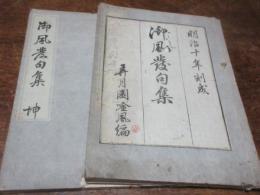 明治十年刻成
御風發句集
弄月園金風編
御風發句集 坤